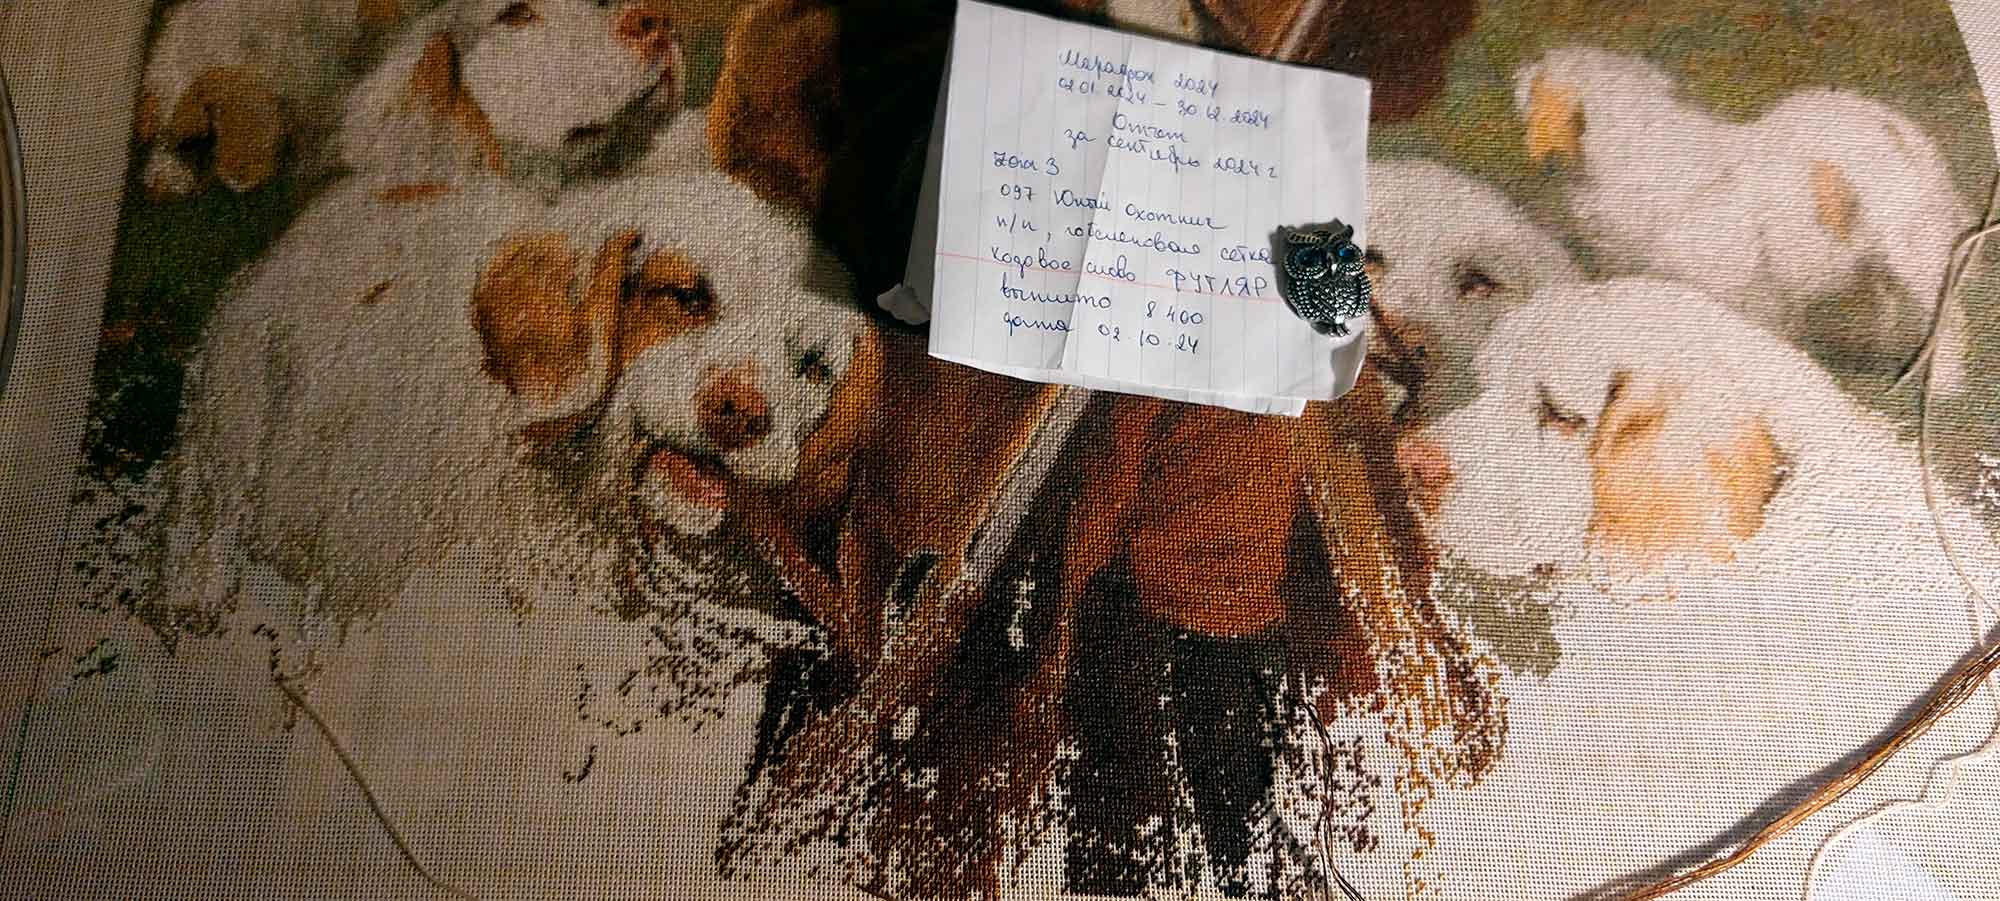 Марафон 2024
02.01.2024 – 30.12.2024
Отчет
за сентябрь 2024 г
097 Юный охотник
п/п, гобеленовая сетка
Кодовое слово ФУТЛЯР
вышито 8 400
дата 02.10.24